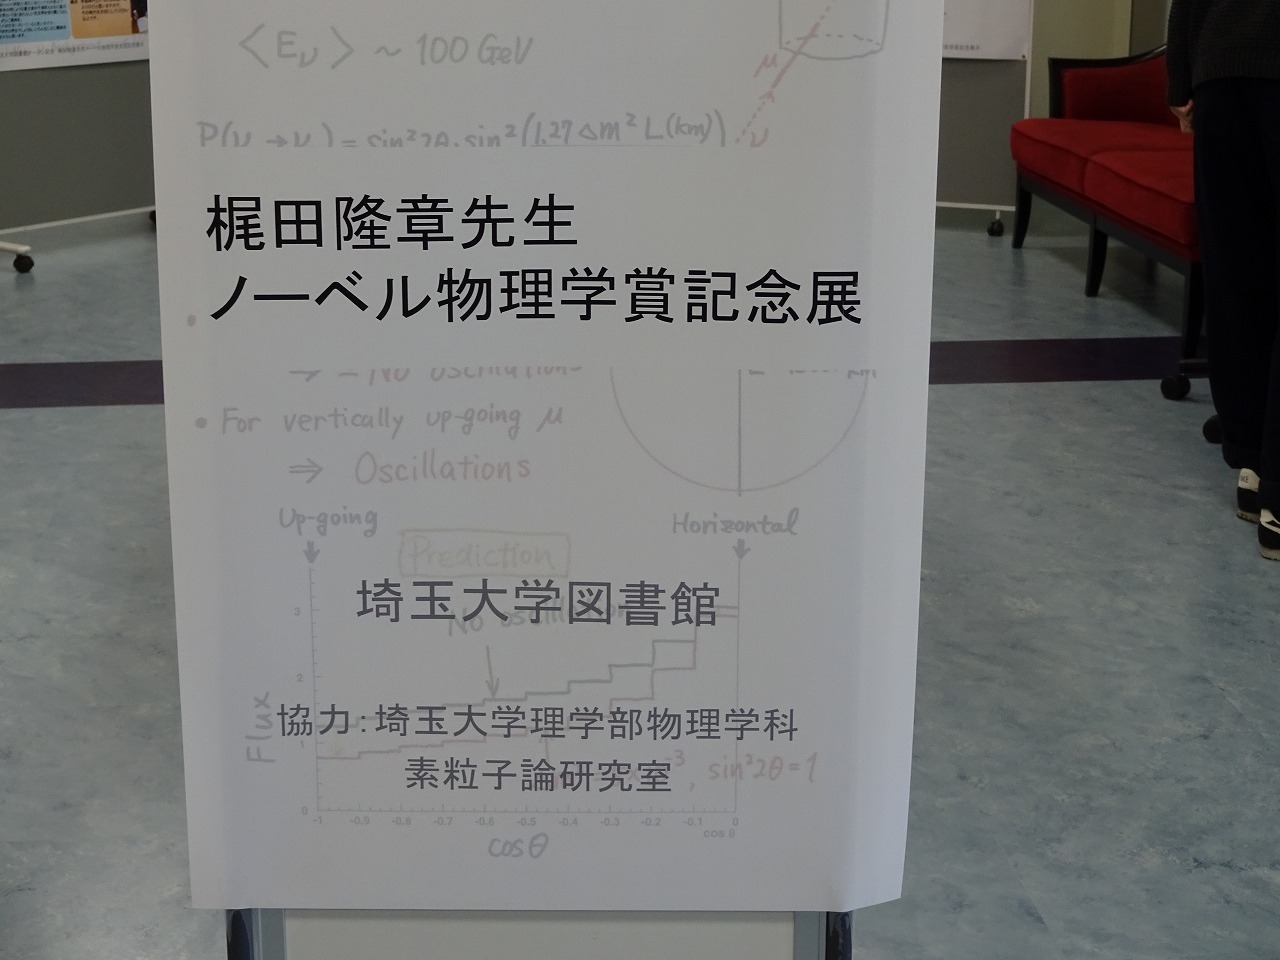 ⟨Eν⟩ ~ 100 GeV
μ
P(ν → ν) = sin²2θ·sin²(1.27 Δm² L(km))
ν
梶田隆章先生
ノーベル物理学賞記念展
• For vertically up-going μ
⇒ Oscillations
Up-going
Horizontal
Prediction
埼玉大学図書館
3
2
Flux
協力：埼玉大学理学部物理学科
1
素粒子論研究室
-3, sin²2θ=1
0
-1 -0.9 -0.8 -0.7 -0.6 -0.5 -0.4 -0.3 -0.2 -0.1 0
cos θ
cosθ